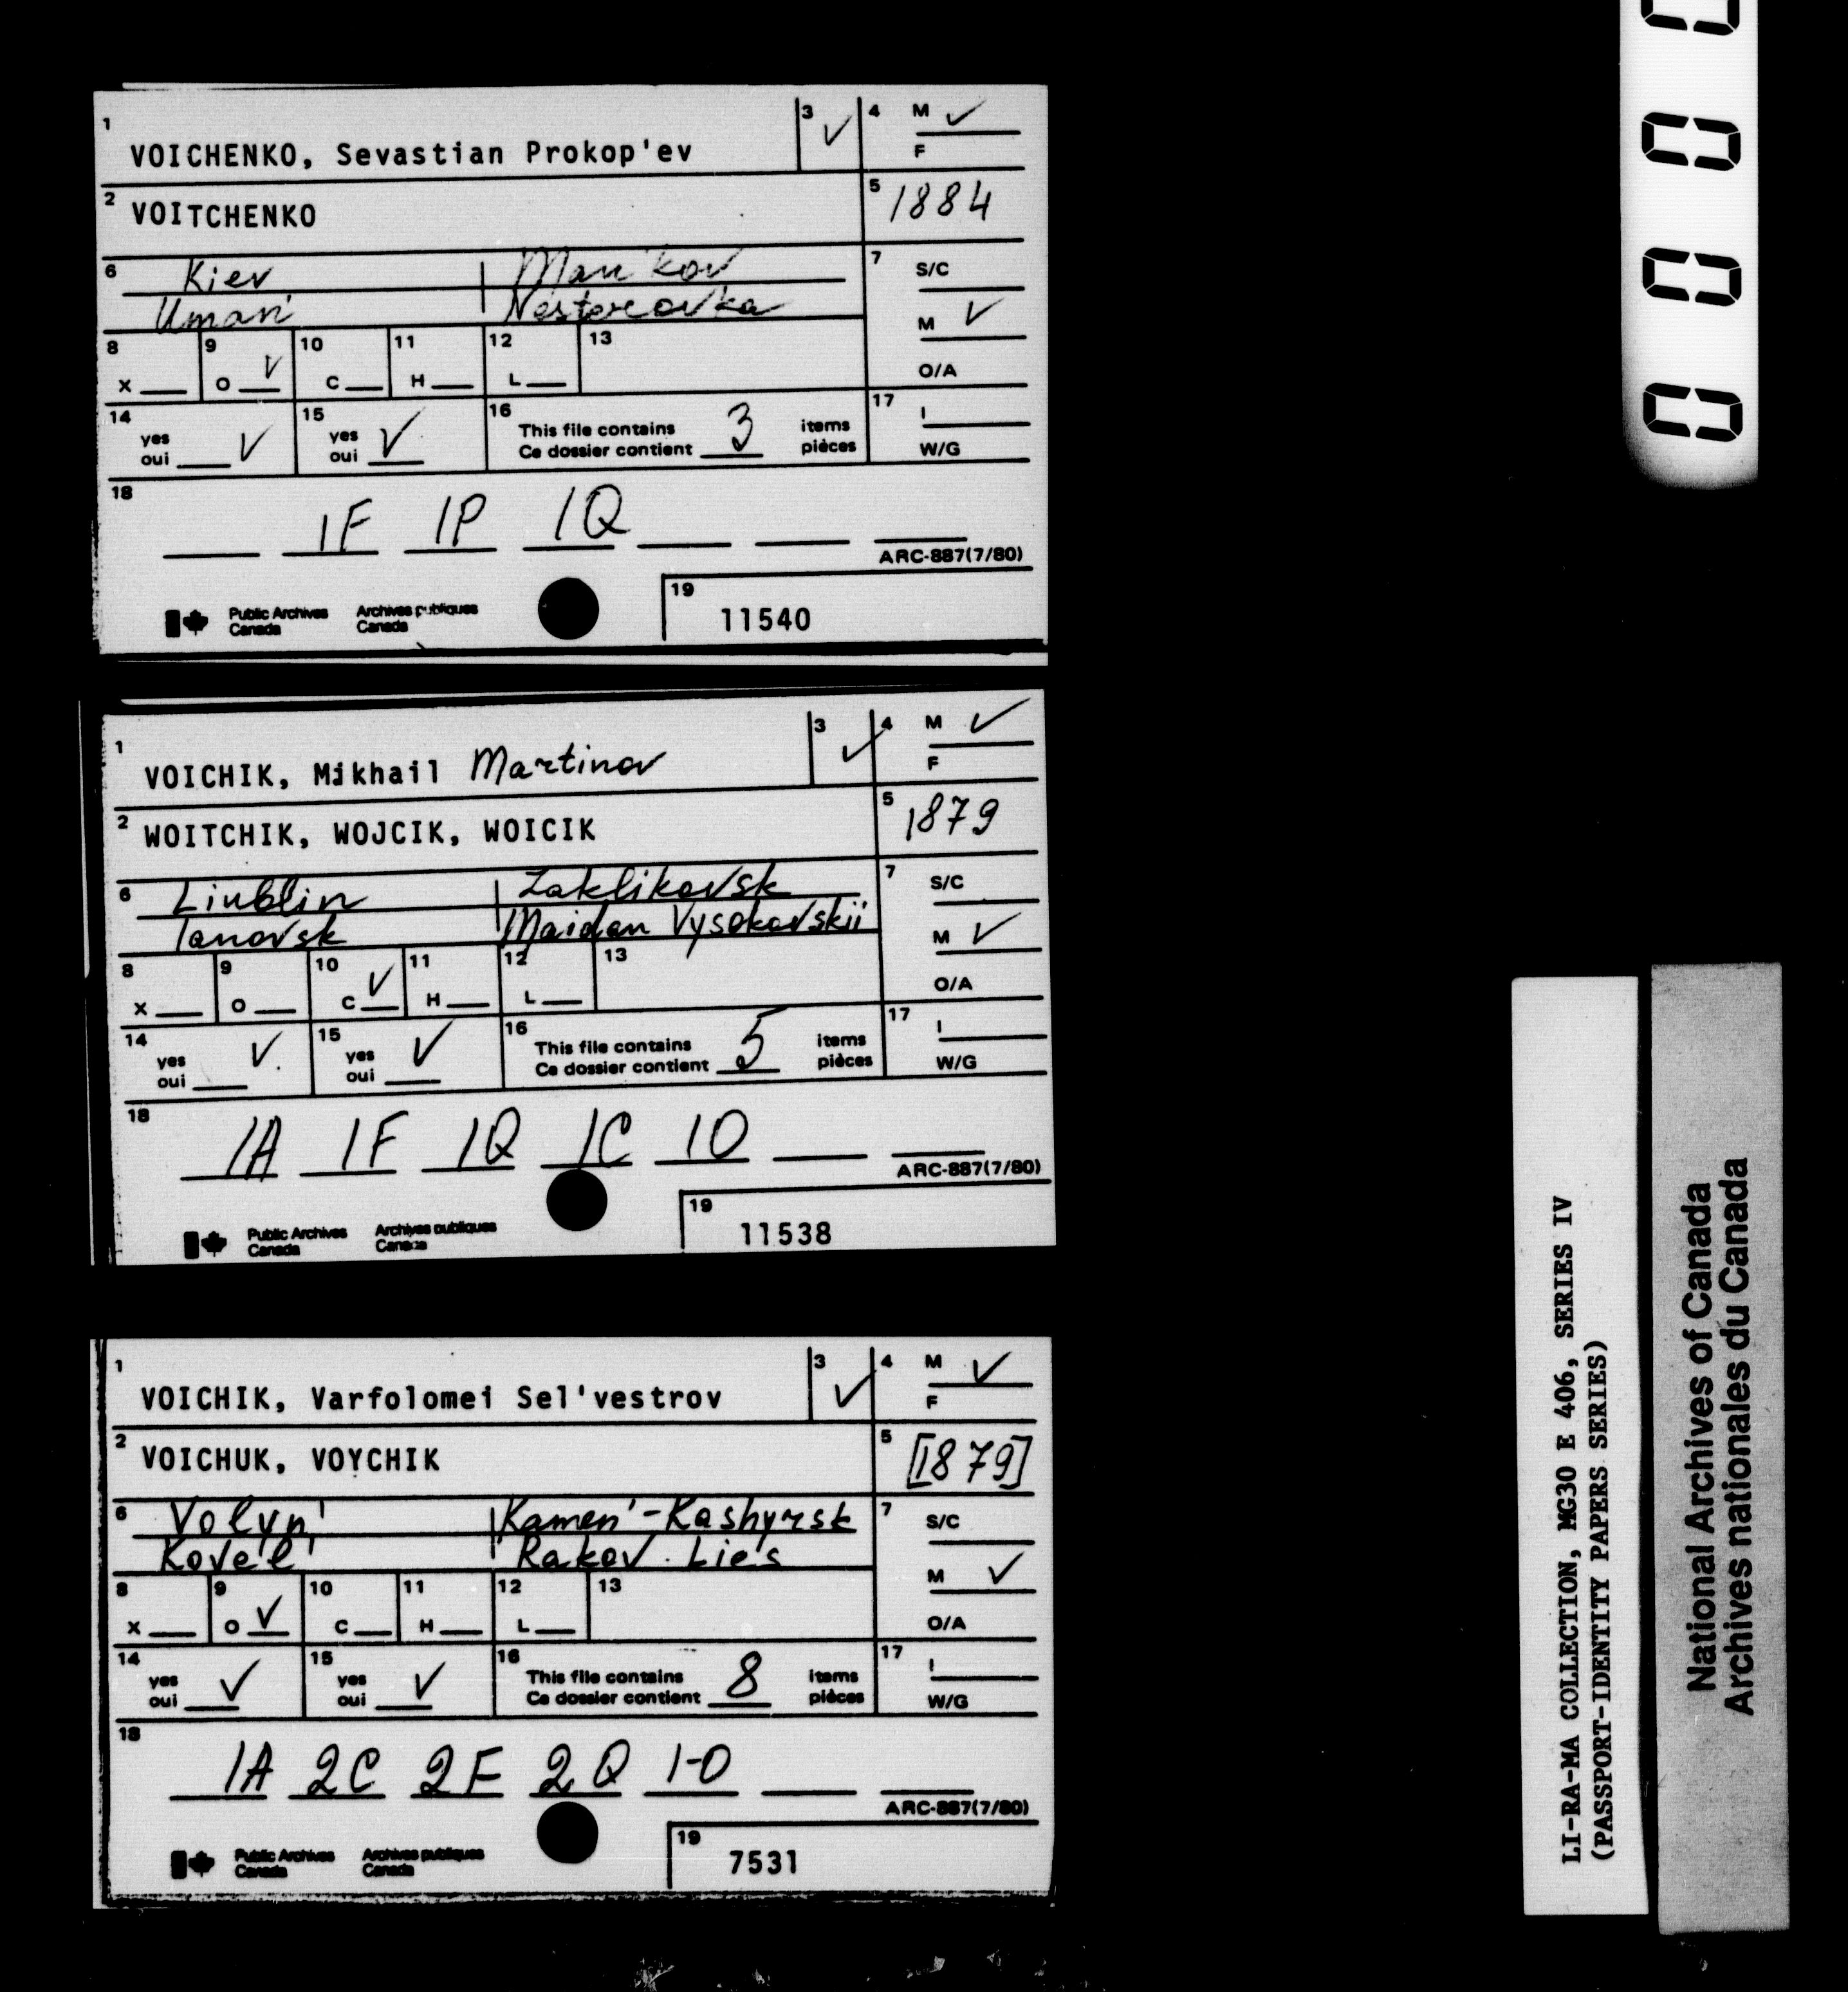 1 VOICHENKO, Sevastian Prokop'ev 3 ✓ 4 M ✓
F
2 VOITCHENKO 5 1884
6 Kiev Man'kov 7 S/C
Uman' Nesterovka M ✓
8 X 9 O ✓ 10 C 11 H 12 L 13 O/A
14 yes oui ✓ 15 yes oui ✓ 16 This file contains 3 items 17 I
Ce dossier contient pièces W/G
18 1F 1P 1Q
ARC-887(7/80)
Public Archives Archives publiques 19 11540
Canada Canada
1 VOICHIK, Mikhail Martinov 3 ✓ 4 M ✓
F
2 WOITCHIK, WOJCIK, WOICIK 5 1879
6 Liublin Zaklikovsk 7 S/C
Ianovsk Maidan Vysokovskii M ✓
8 X 9 O 10 C ✓ 11 H 12 L 13 O/A
14 yes oui ✓ 15 yes oui ✓ 16 This file contains 5 items 17 I
Ce dossier contient pièces W/G
18 1A 1F 1Q 1C 1O
ARC-887(7/80)
Public Archives Archives publiques 19 11538
Canada Canada
1 VOICHIK, Varfolomei Sel'vestrov 3 ✓ 4 M ✓
F
2 VOICHUK, VOYCHIK 5 [1879]
6 Volyn' Kamen'-Kashyrsk 7 S/C
Kovel' Rakov. Lies M ✓
8 X 9 O ✓ 10 C 11 H 12 L 13 O/A
14 yes oui ✓ 15 yes oui ✓ 16 This file contains 8 items 17 I
Ce dossier contient pièces W/G
18 1A 2C 2F 2Q 1-O
ARC-887(7/80)
Public Archives Archives publiques 19 7531
Canada Canada
0 0 0
LI-RA-MA COLLECTION, MG30 E 406, SERIES IV
(PASSPORT-IDENTITY PAPERS SERIES)
National Archives of Canada
Archives nationales du Canada